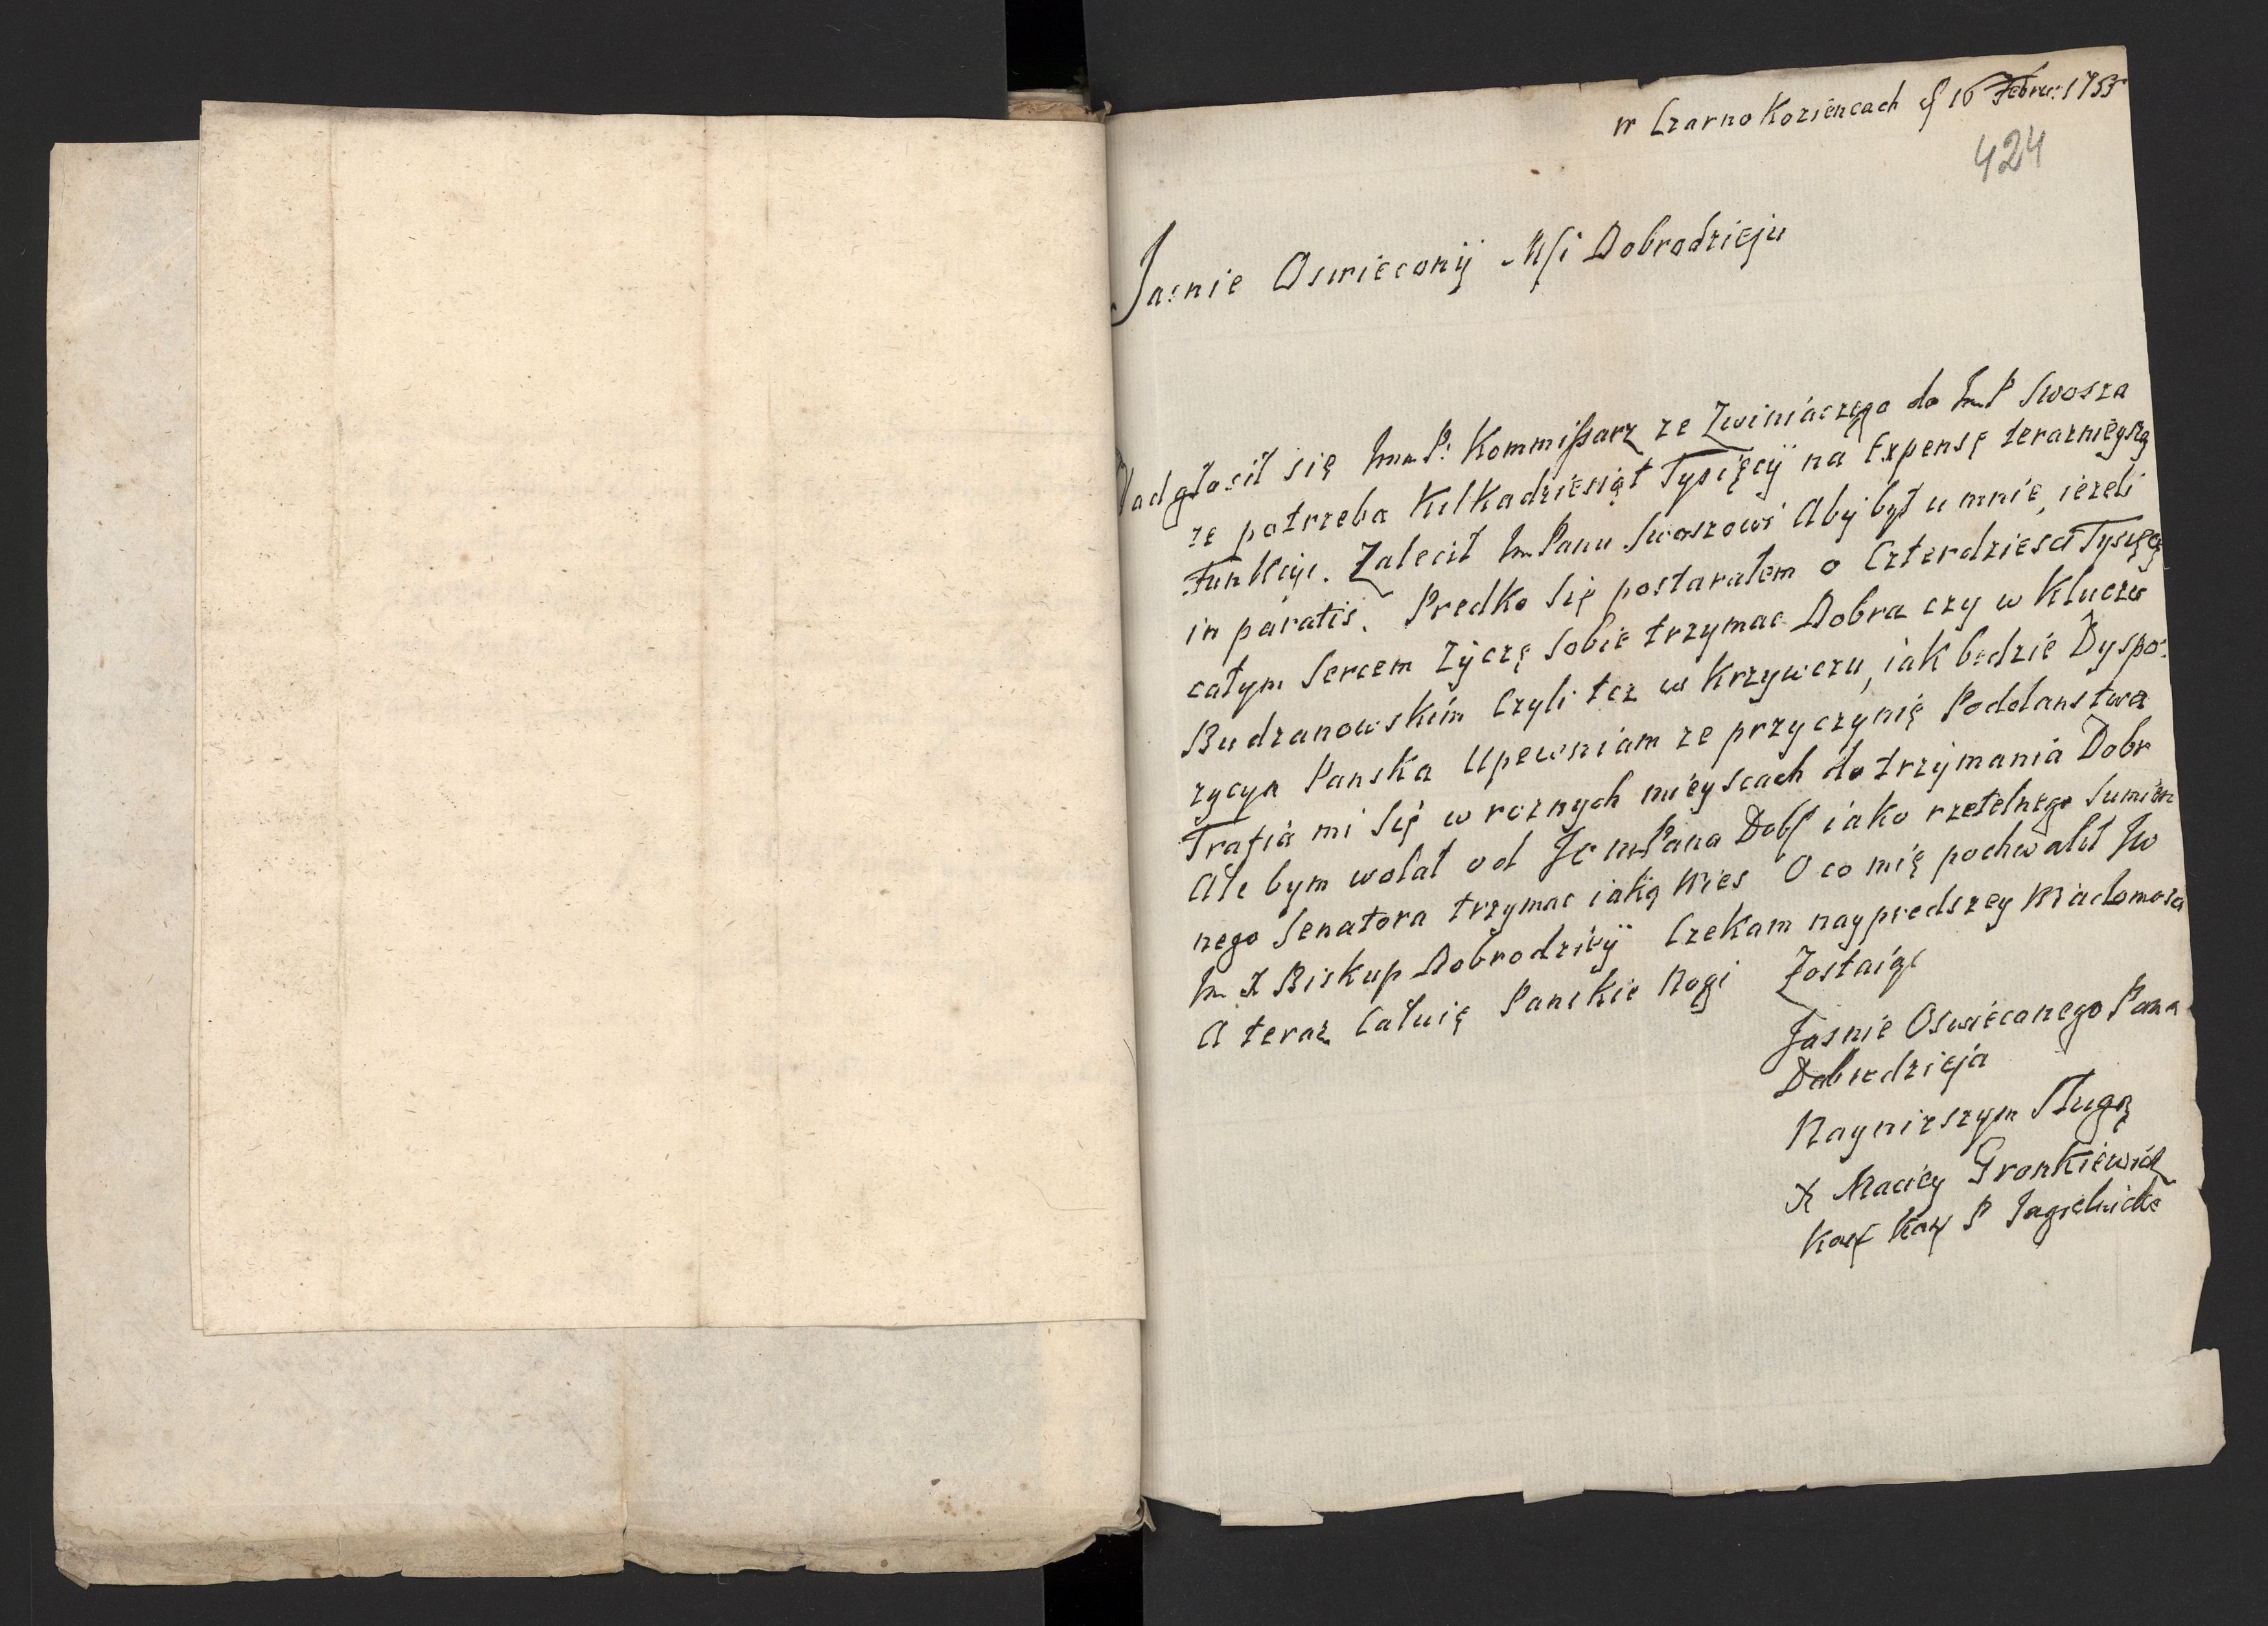 w CzarnoKoziencach d 16 Febru: 1755
424
Jasnie Oswieconÿ Mſi Dobrodzieju
Nadgłosił się Jmm P: Kommißarz ze Zwiniaczego do Jm P Swosza
ze potrzeba Kilkadziesiąt Tysięcÿ na Expensę terazniejszą
Funkcÿi. Zalecił Jm Panu Swoszowi Aby był u mnie, iezeli
in paratis. Predko Się postarałem o Czterdziesci Tysięcy
całym Sercem Zÿczę Sobie trzymac Dobra czy w Kluczu
Budzanowskim Czyli tez w Krzywczu, iak bedzie Dyspo:
zycya Panska Upewniam ze przyczynię Poddanstwa
Trafia mi Się w roznych mieyscach do trzÿmania Dobr
Ale bym wolał od Jc m Pana Dobſ iako rzetelnego Sumien
nego Senatora trzymac iaką Wies O co mię pochwalił Jw
Jm X Biskup Dobrodzieÿ Czekam nayprедszey Wiadomosci
A teraz Całuię Panskie Nogi Zostaiąc
Jasnie Oswieconego Pana
Dobrodzieja
Nayniszszym Sługą
X Maciey Gronkiewicz
Kaz P Jagielnicki